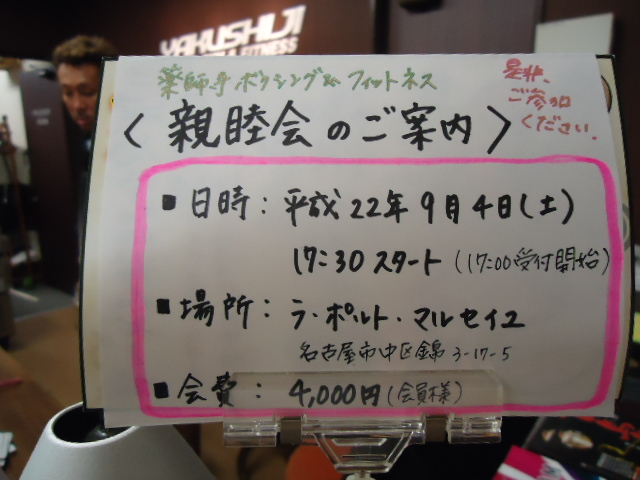 YAKUSHIJI
& FITNESS
薬師寺ボクシング&フィットネス
是非、
ご参加
ください。
〈親睦会のご案内〉
■日時：平成22年9月4日(土)
17:30スタート(17:00受付開始)
■場所：ラ・ポルト・マルセイユ
名古屋市中区錦3-17-5
■会費：4,000円(会員様)